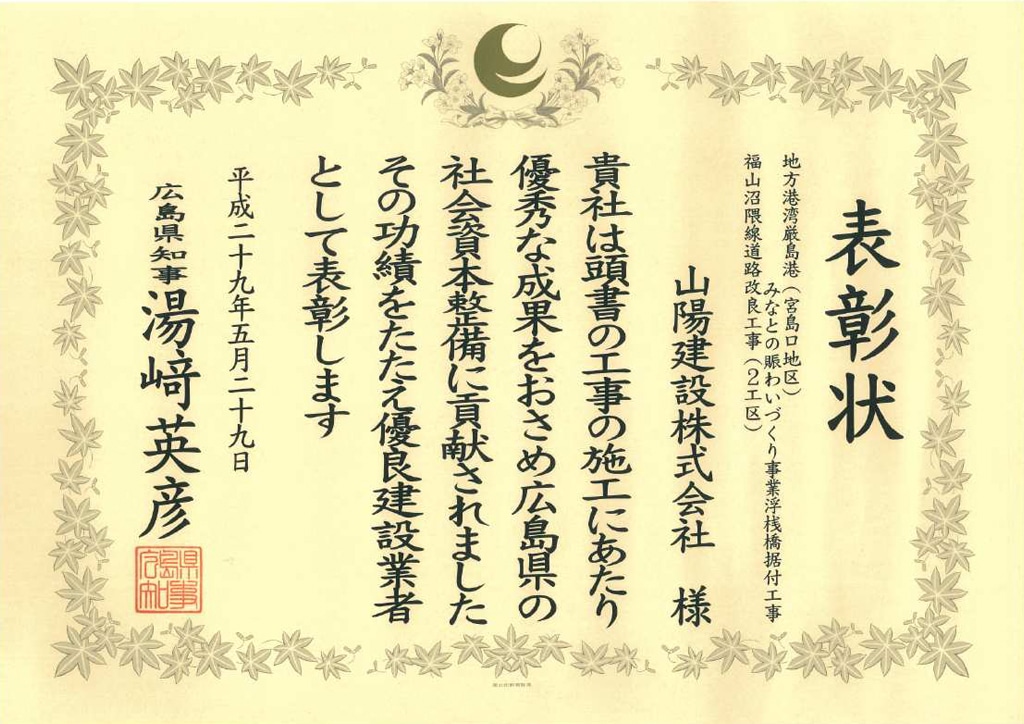 表彰状
地方港湾厳島港(宮島口地区)
みなとの賑わいづくり事業浮桟橋据付工事
福山沼隈線道路改良工事(2工区)
山陽建設株式会社 様
貴社は頭書の工事の施工にあたり
優秀な成果をおさめ広島県の
社会資本整備に貢献されました
その功績をたたえ優良建設業者
として表彰します
平成二十九年五月二十九日
広島県知事 湯﨑英彦
広島県知事